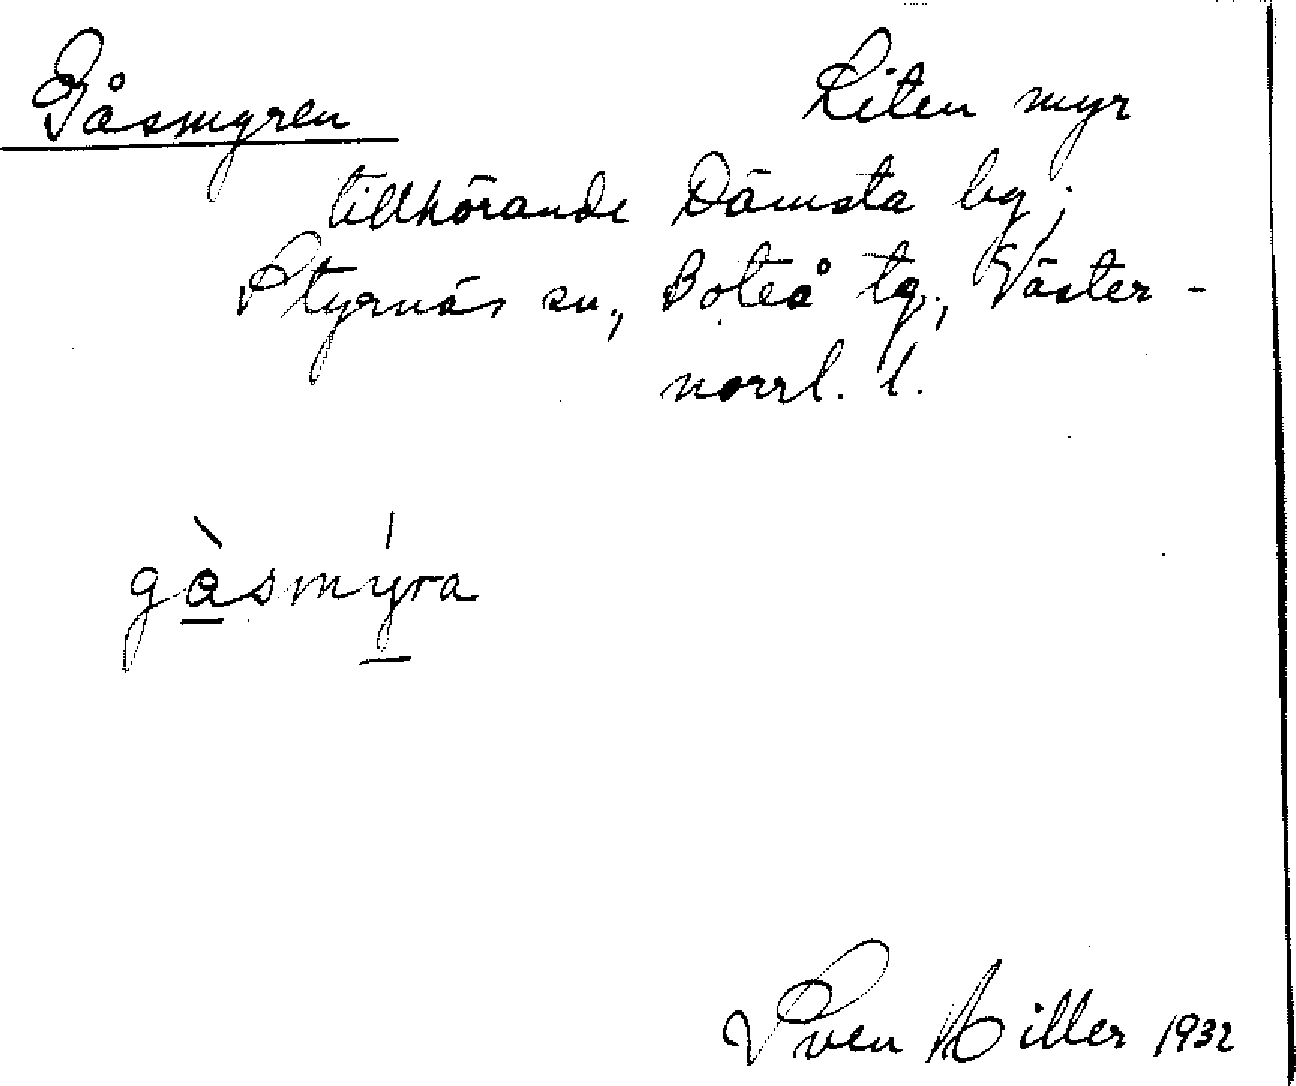 Gåsmyren Liten myr
tillhörande Dämsta by,
Styrnäs sn., Boteå tg., Väster-
norrl. l.
gåsmyra
Sven Hiller 1932